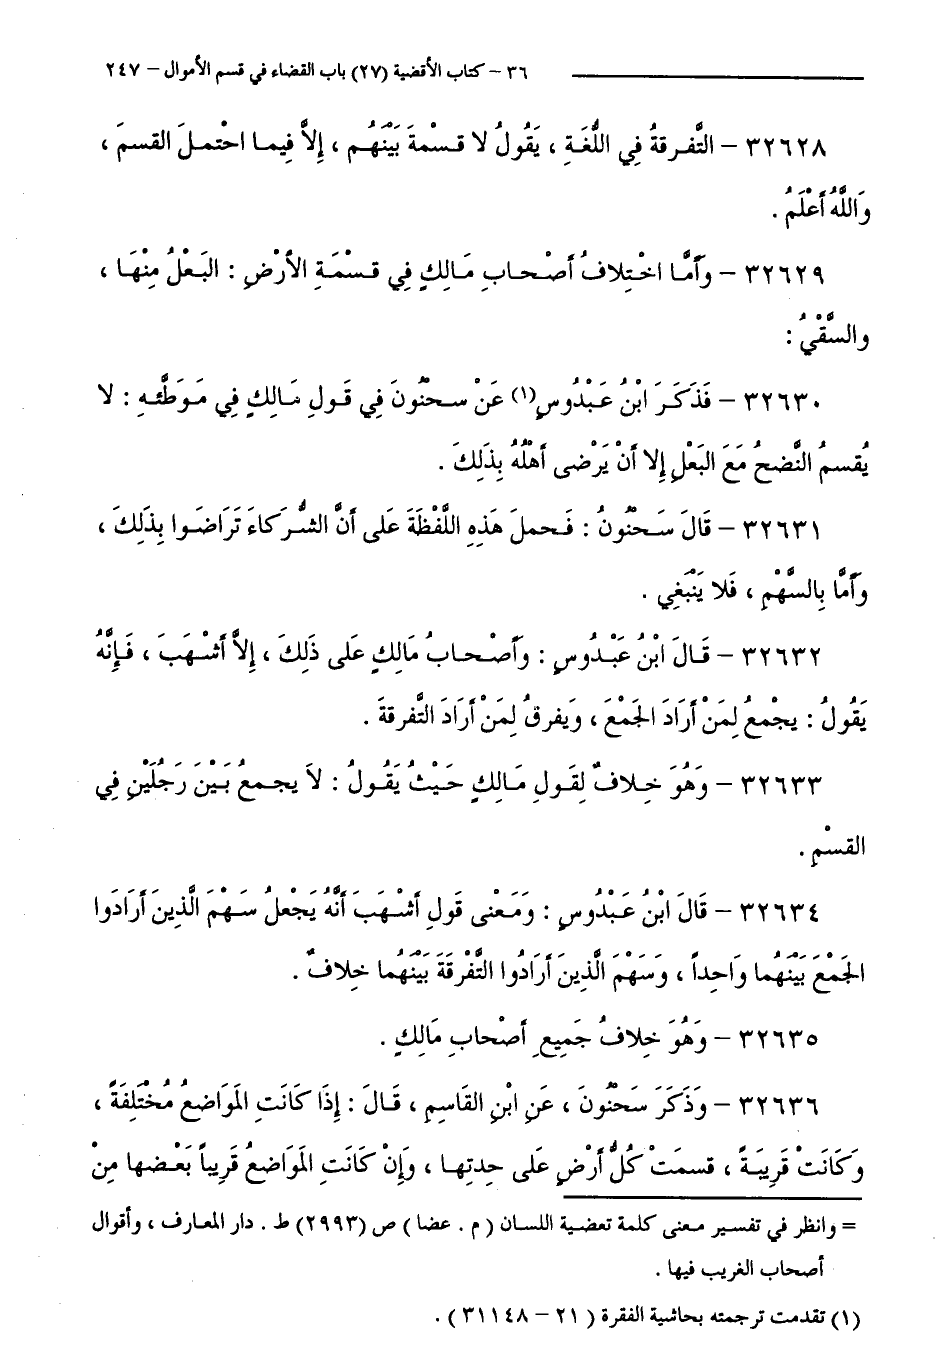 ٣٦ – كتاب الأقضية (٢٧) باب القضاء في قسم الأموال – ٢٤٧
٣٢٦٢٨ – التَّفرقةُ فِي اللُّغَةِ ، يَقُولُ لا قسْمةَ بَيْنَهُم ، إِلاَّ فِيما احْتملَ القسمَ ،
وَاللَّهُ أَعْلَمُ .
٣٢٦٢٩ – وأَمَّا اخْتِلافُ أصْحابِ مَالِكٍ فِي قسْمَةِ الأرْضِ : البَعْلُ مِنْهَا ،
والسَّقْيُ :
٣٢٦٣٠ – فَذَكَرَ ابْنُ عَبْدُوسٍ(١) عَنْ سحنُونَ فِي قَولِ مَالِكٍ فِي مَوَطَّئهِ : لا
يُقسمُ النَّضحُ مَعَ البَعْلِ إِلا أنْ يَرْضى أهْلُهُ بِذَلِكَ .
٣٢٦٣١ – قَالَ سَحنُونُ : فَحملَ هَذِهِ اللَّفْظَةَ عَلى أنَّ الشُّركاءَ تَرَاضَوا بِذَلِكَ ،
وأَمَّا بِالسَّهْمِ ، فَلا يَنْبَغِي .
٣٢٦٣٢ – قَالَ ابْنُ عَبْدُوسٍ : وأَصْحابُ مَالِكٍ عَلى ذَلِكَ ، إِلاَّ أشْهَبَ ، فَإِنَّهُ
يَقُولُ : يجْمعُ لِمَنْ أرَادَ الجَمْعَ ، وَيفرقُ لِمَنْ أرَادَ التَّفرقةَ .
٣٢٦٣٣ – وَهُوَ خلافٌ لِقَولِ مَالِكٍ حَيْثُ يَقُولُ : لاَ يجمعُ بَيْنَ رَجُلَيْنِ فِي
القسْمِ .
٣٢٦٣٤ – قَالَ ابْنُ عَبْدُوسٍ : وَمَعْنى قَولِ أشْهَبَ أنَّهُ يَجْعلُ سَهْمَ الَّذِينَ أرَادُوا
الجَمْعَ بَيْنَهُما وَاحِداً ، وَسَهْمَ الَّذِينَ أرَادُوا التَّفْرِقَةَ بَيْنَهُما خلافٌ .
٣٢٦٣٥ – وَهُوَ خلافُ جَمِيعِ أصْحابِ مَالِكٍ .
٣٢٦٣٦ – وَذَكَرَ سَحنُونَ ، عَنِ ابْنِ القَاسِمِ ، قَالَ : إِذَا كَانَتِ المَوَاضعُ مُخْتَلِفَةً ،
وَكَانَتْ قَرِيبَةً ، قسمَتْ كُلُّ أرْضٍ عَلى حدتِها ، وَإِنْ كَانَتِ المَوَاضعُ قَرِيباً بَعْضها مِنْ
= وانظر في تفسير معنى كلمة تعضية اللسان ( م . عضا ) ص (٢٩٩٣) ط . دار المعارف ، وأقوال
أصحاب الغريب فيها .
(١) تقدمت ترجمته بحاشية الفقرة ( ٢١ – ٣١١٤٨ ) .